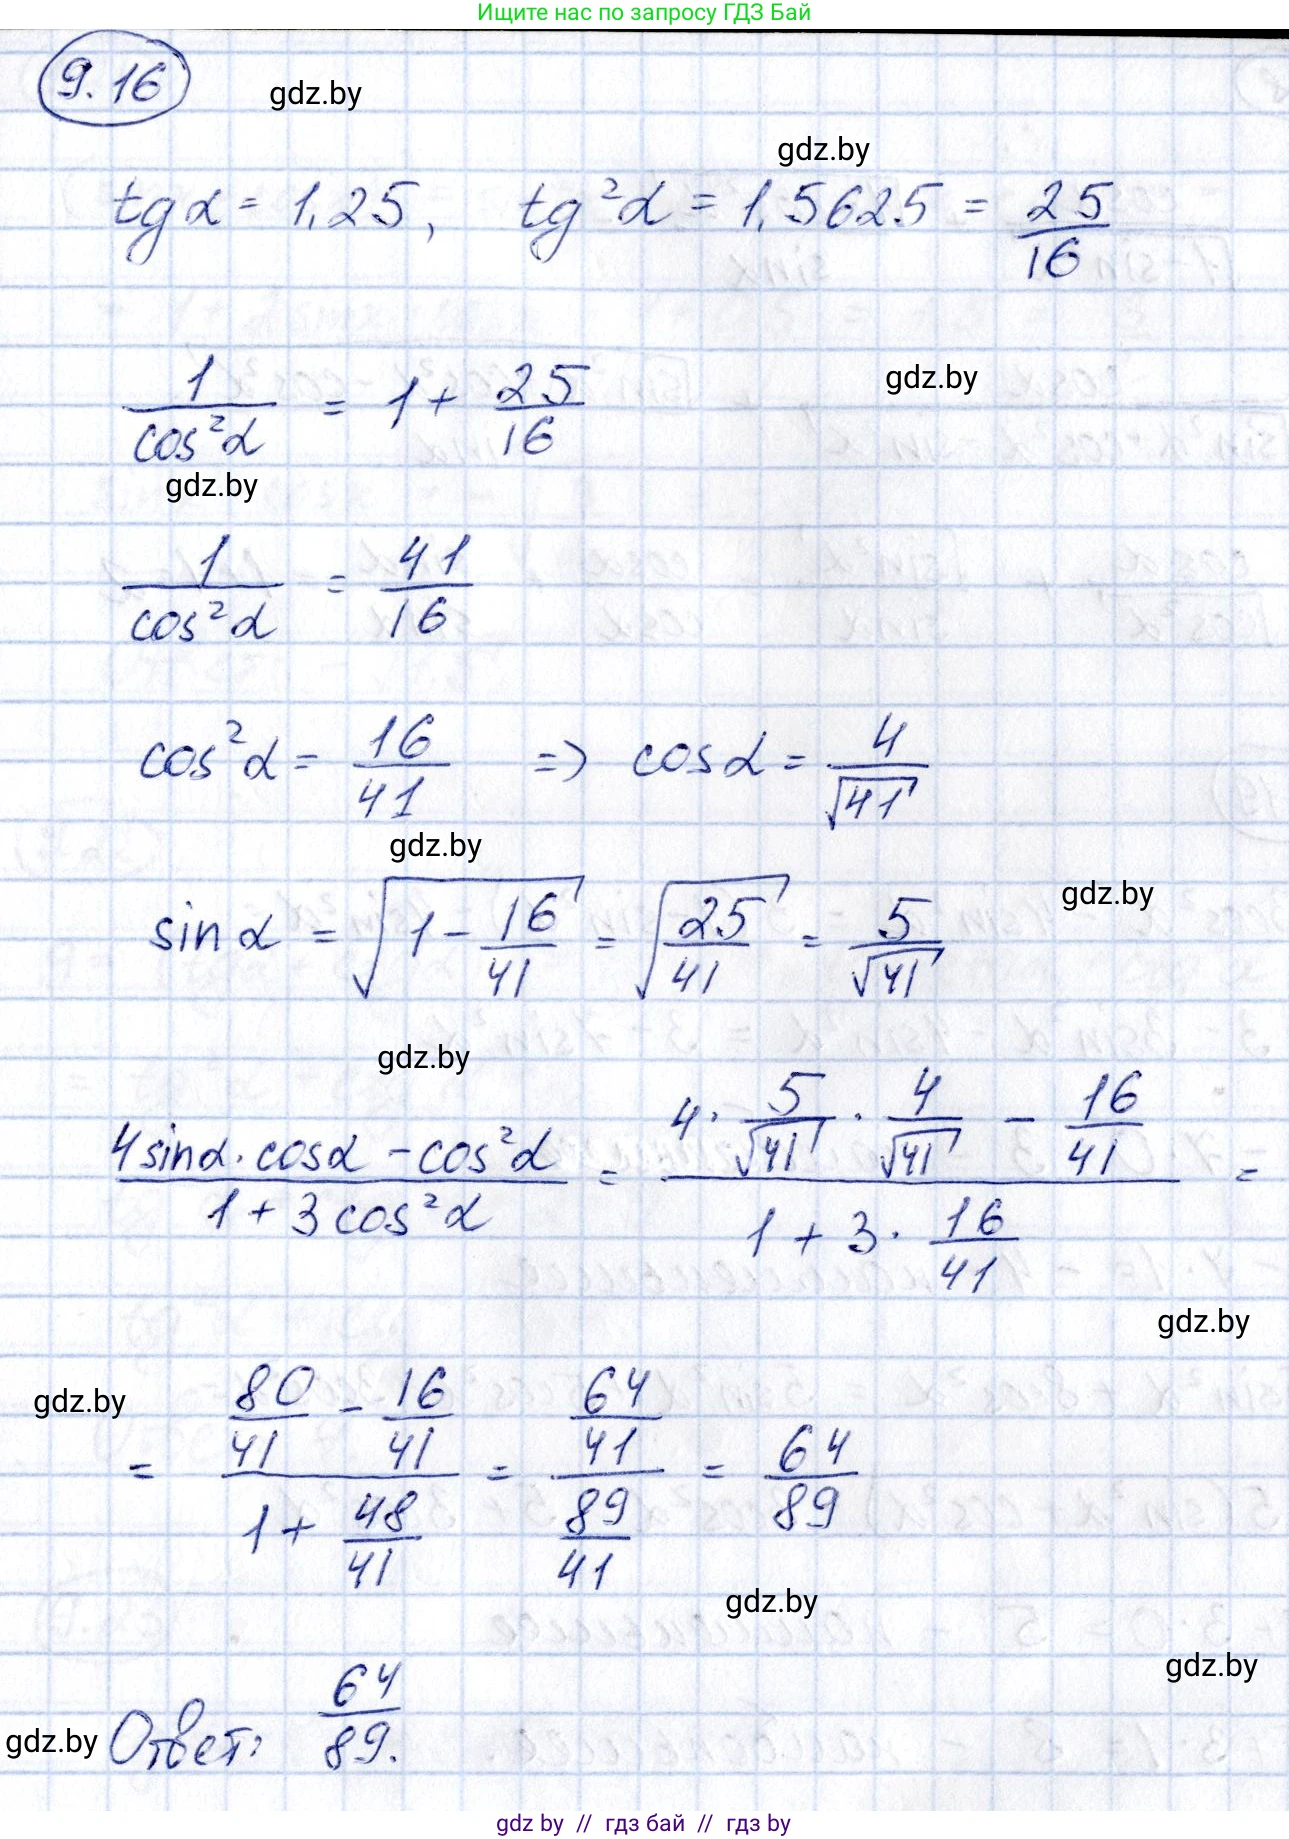 Ищите нас по запросу ГДЗ Бай
9.16
gdz.by
gdz.by
tg α = 1,25, tg²α = 1,5625 = 25/16
gdz.by
1/cos²α = 1 + 25/16
gdz.by
1/cos²α = 41/16
cos²α = 16/41 => cos α = 4/√41
gdz.by
gdz.by
sin α = √(1 - 16/41) = √(25/41) = 5/√41
gdz.by
(4 sin α · cos α - cos²α)/(1 + 3 cos²α) = (4 · 5/√41 · 4/√41 - 16/41)/(1 + 3 · 16/41) =
gdz.by
gdz.by
= (80/41 - 16/41)/(1 + 48/41) = (64/41)/(89/41) = 64/89
gdz.by
gdz.by
gdz.by
Ответ: 64/89.
gdz by // гдз бай // gdz by